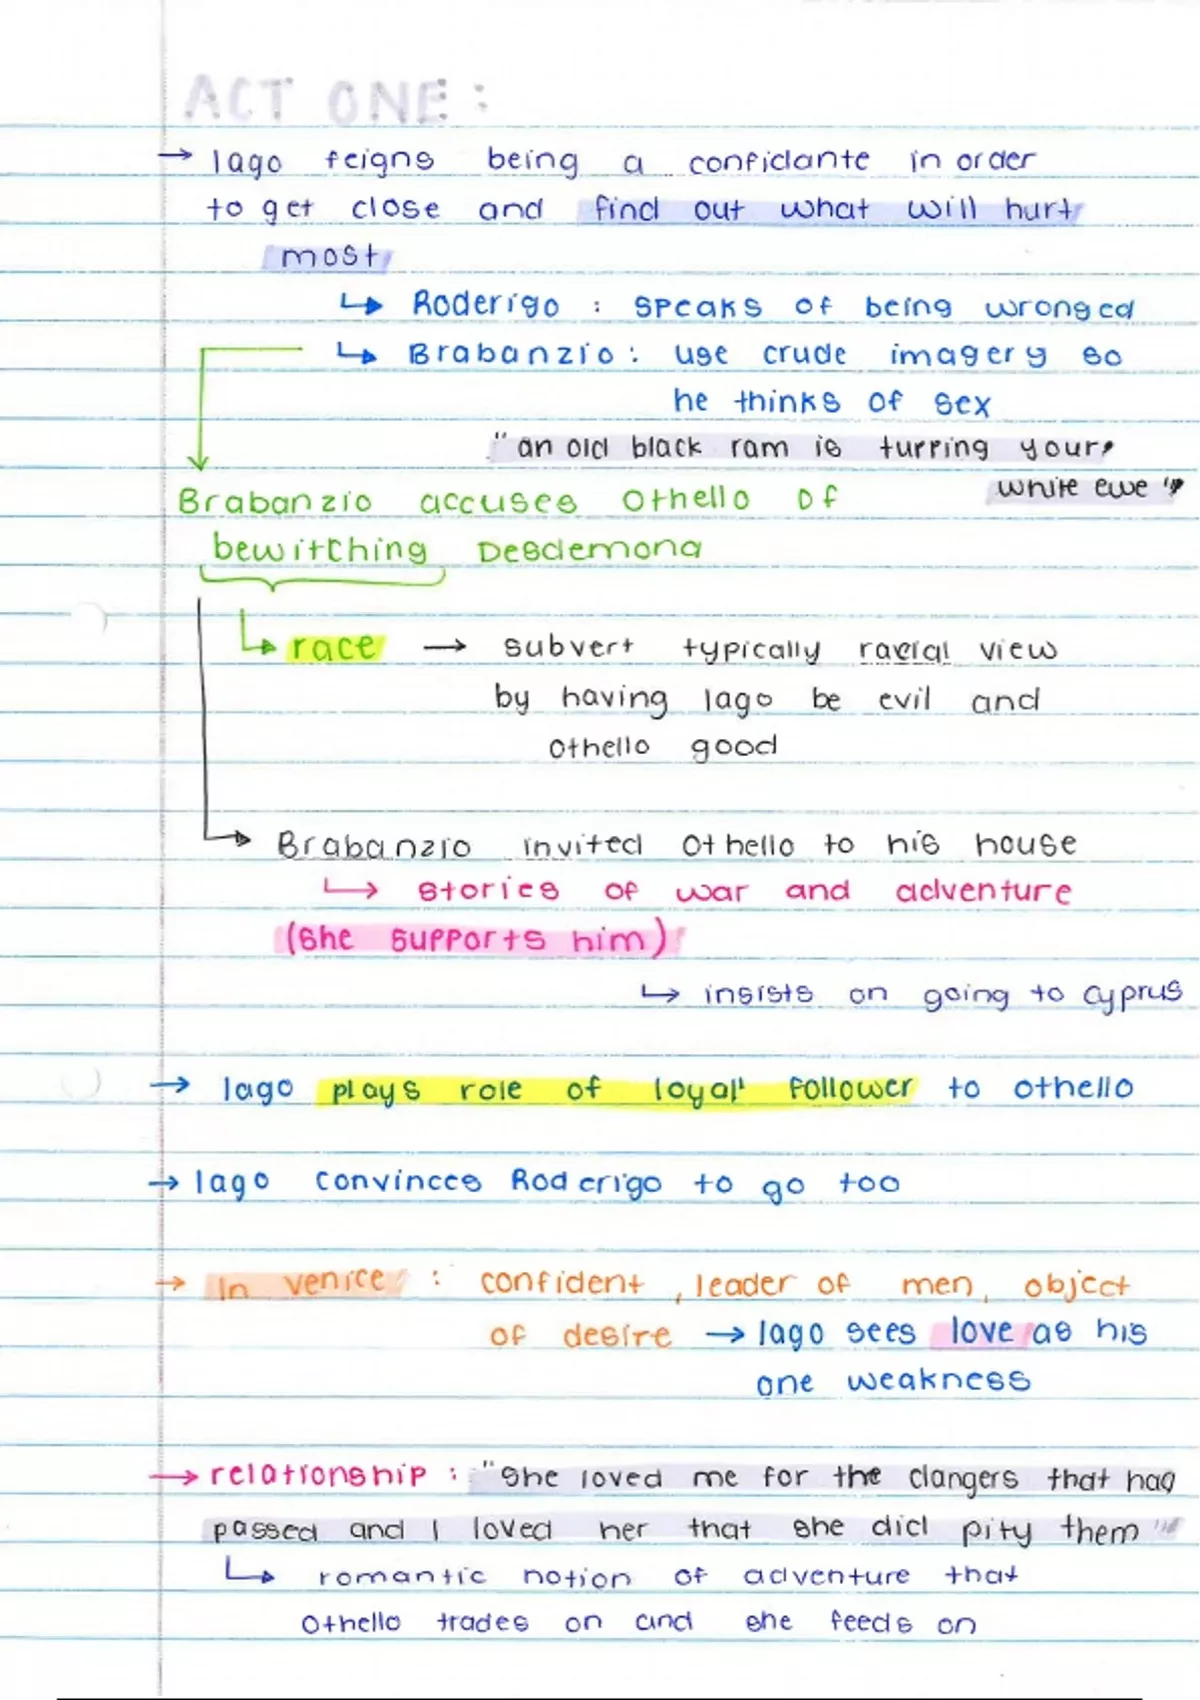 ACT ONE :
→ Iago feigns being a confidante in order
to get close and find out what will hurt
most
↳ Roderigo : speaks of being wronged
↳ Brabanzio : use crude imagery so
he thinks of sex
"an old black ram is tupping your
white ewe"
Brabanzio accuses Othello of
bewitching Desdemona
↳ race → subvert typically racial view
by having Iago be evil and
Othello good
Brabanzio invited Othello to his house
↳ stories of war and adventure
(she supports him)
↳ insists on going to Cyprus
→ Iago plays role of 'loyal' follower to Othello
→ Iago convinces Roderigo to go too
→ In Venice : confident, leader of men, object
of desire → Iago sees love as his
one weakness
→ relationship : "She loved me for the dangers that had
passed and I loved her that she did pity them"
↳ romantic notion of adventure that
Othello trades on and she feeds on